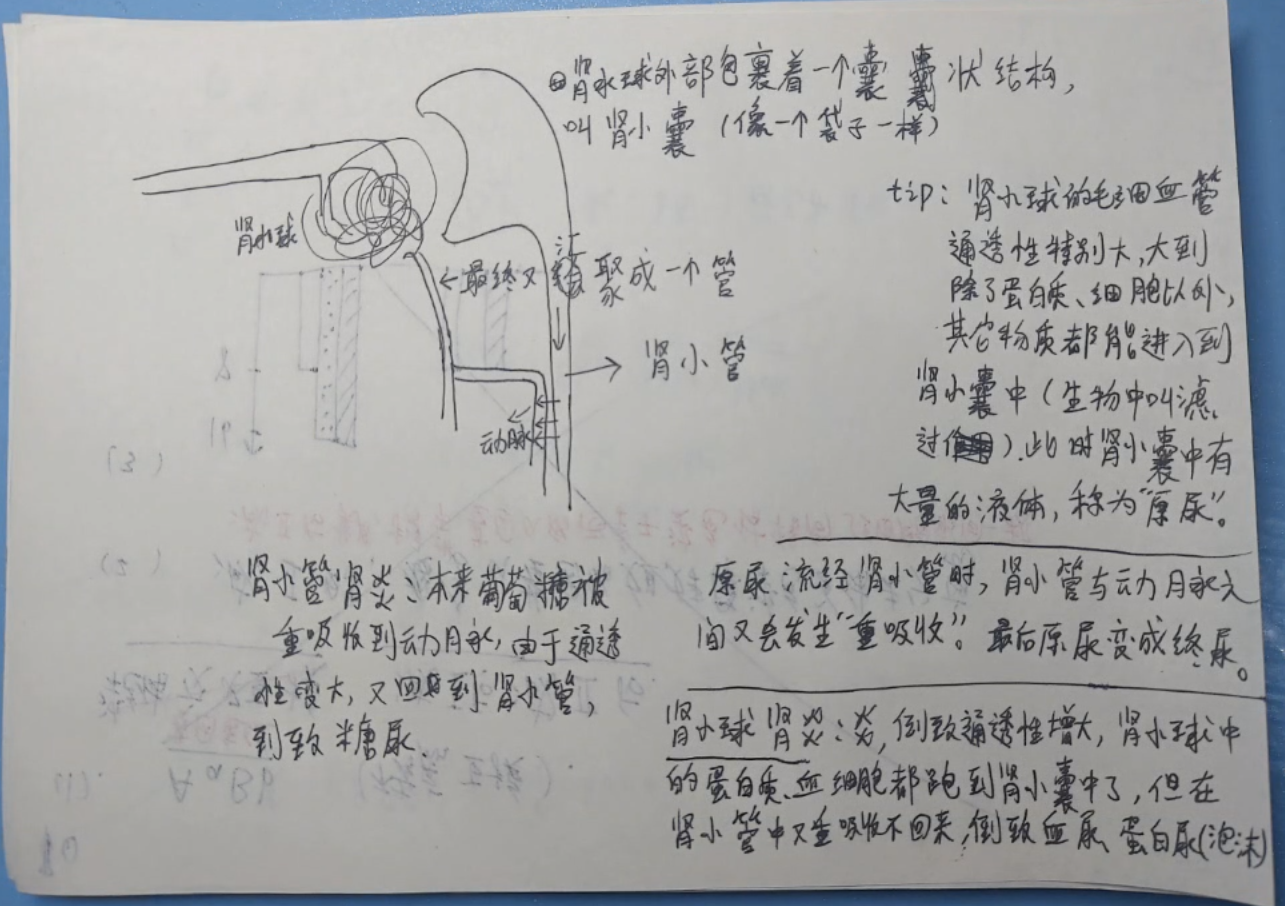 肾小球外部包裹着一个囊 囊状结构,
叫肾小囊 (像一个袋子一样)
肾小球
←最终又汇聚成一个管
→ 肾小管
动脉
tip: 肾小球的毛细血管
通透性特别大,大到
除了蛋白质、细胞以外,
其它物质都能进入到
肾小囊中(生物中叫滤
过作用).此时肾小囊中有
大量的液体,称为“原尿”。
原尿流经肾小管时,肾小管与动脉之
间又会发生“重吸收”。最后原尿变成终尿。
肾小管肾炎:本来葡萄糖被
重吸收到动脉,由于通透
性变大,又回到肾小管,
到致糖尿
肾小球肾炎:炎,倒致通透性增大,肾小球中
的蛋白质、血细胞都跑到肾小囊中了,但在
肾小管中又重吸收不回来,倒致血尿、蛋白尿(泡沫)
(3)
(2)
(1).
AaBb